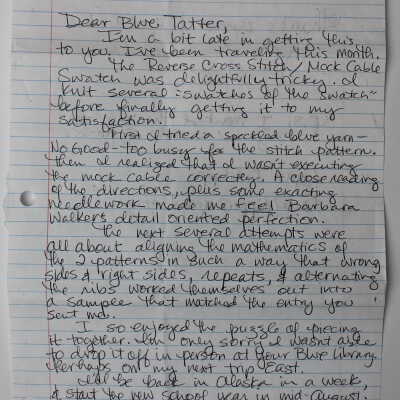 Dear Blue Tatter,
I'm a bit late in getting this
to you. I've been traveling this month.
The Reverse Cross Stitch/Mock Cable
Swatch was delightfully tricky. I
knit several "swatches of the swatch"
before finally getting it to my
satisfaction.
First I tried a speckled blue yarn—
No Good - too busy for the stitch pattern.
Then I realized that I wasn't executing
the mock cable correctly. A close reading
of the directions, plus some exacting
needlework made me feel Barbara
Walker's detail oriented perfection.
The next several attempts were
all about aligning the mathematics of
the 2 patterns in such a way that wrong
sides & right sides, repeats, & alternating
the ribs worked themselves out into
a sample that matched the entry you
sent me.
I so enjoyed the puzzle of piecing
it together. I'm only sorry I wasn't able
to drop it off in person at your Blue Library.
Perhaps on my next trip East.
I'll be back in Alaska in a week,
& start the new school year in mid-August.